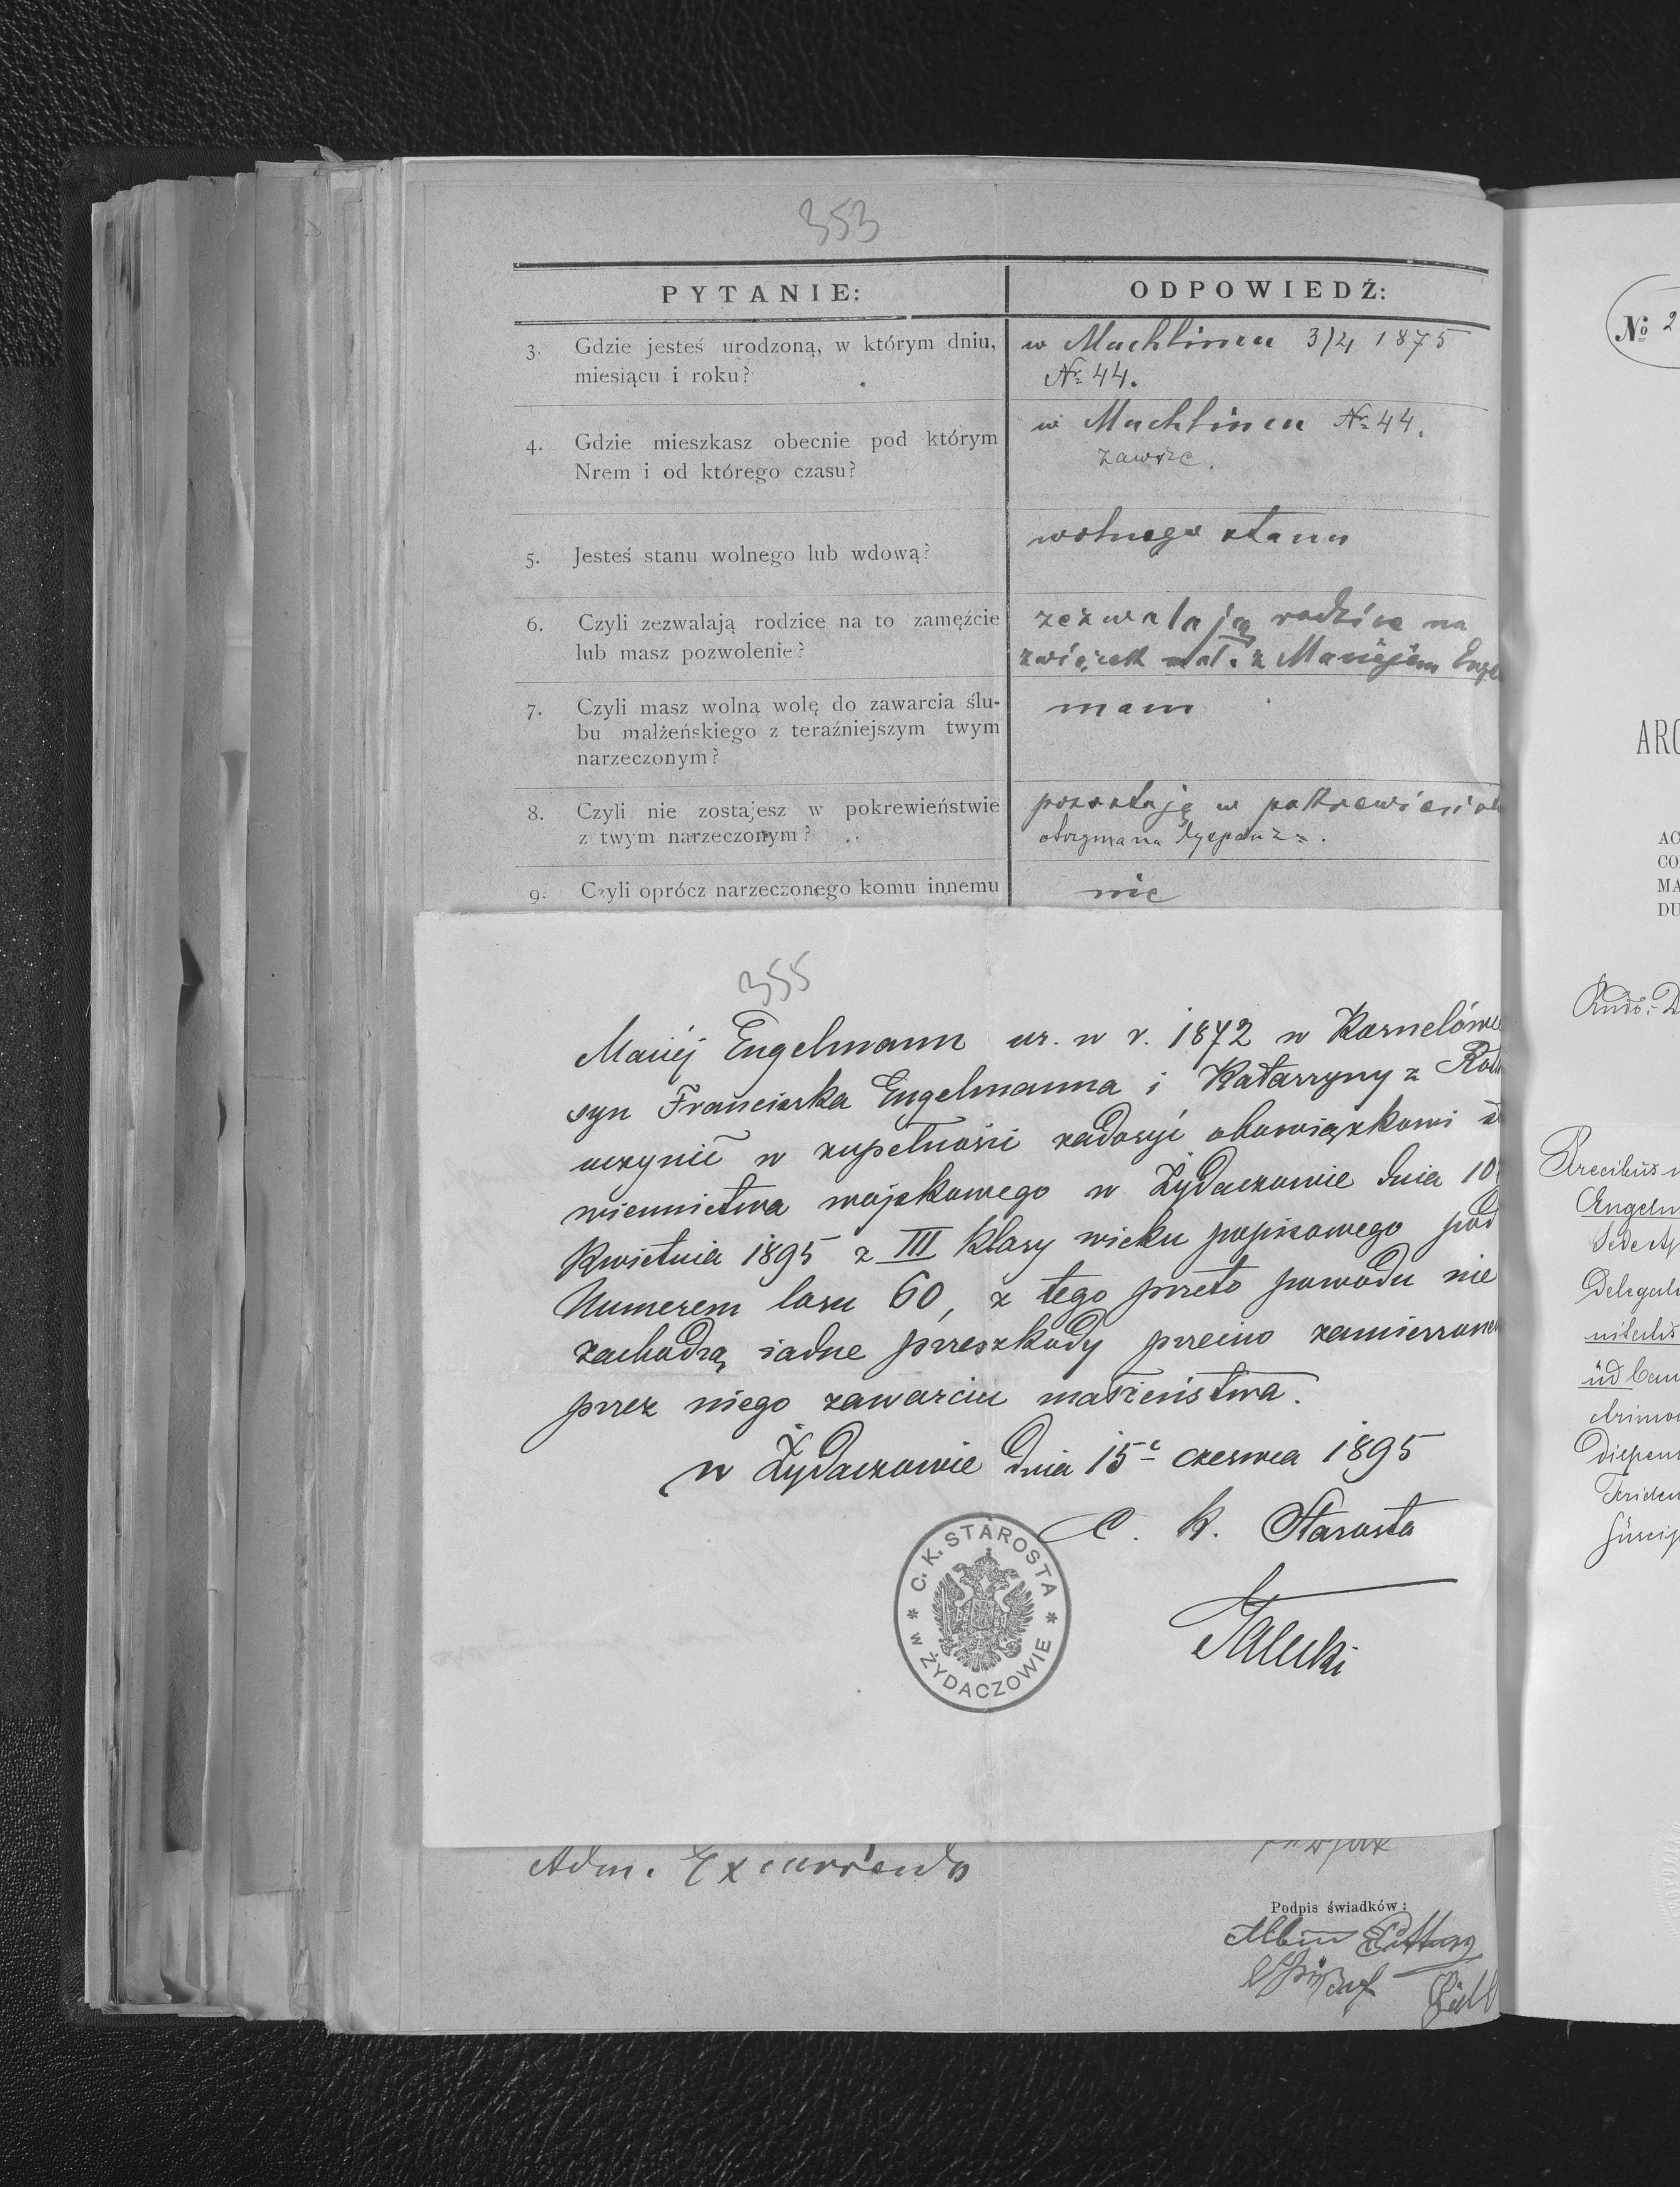 353
PYTANIE:
ODPOWIEDŹ:
3. Gdzie jesteś urodzoną, w którym dniu,
miesiącu i roku?
w Machlińcu 3/4 1875
Nr 44.
4. Gdzie mieszkasz obecnie pod którym
Nrem i od którego czasu?
w Machlińcu Nr 44.
zawsze.
5. Jesteś stanu wolnego lub wdową?
wolnego stanu
6. Czyli zezwalają rodzice na to zamęźcie
lub masz pozwolenie?
zezwalają rodzice na
związek mał. z Maciejem Enge
7. Czyli masz wolną wolę do zawarcia ślu-
bu małżeńskiego z teraźniejszym twym
narzeczonym?
mam
8. Czyli nie zostajesz w pokrewieństwie
z twym narzeczonym?
pozostaję w
otrzymana dyspenz
9. Czyli oprócz narzeczonego komu innemu
nie
355
Maciej Engelmann ur. w r. 1872 w Kornelówce
syn Franciszka Engelmanna i Katarzyny z
uczynił w zupełności zadosyć obowiązkowi
wiennictwa wojskowego w Żydaczowie dnia 10
Kwietnia 1895 z III klasy wieku popisowego pod
Numerem losu 60, z tego przeto powodu nie
zachodzą żadne przeszkody przeciw zamierzone
przez niego zawarciu małżeństwa.
w Żydaczowie dnia 15 czerwca 1895
C. k. Starosta
C. K. STAROSTA
w ŻYDACZOWIE
Adm. Excurrendo
Podpis świadków:
Albin
No 2
ARC
AC
CO
MA
DU
Precibus
Angelm
Sede Ap
Delegat